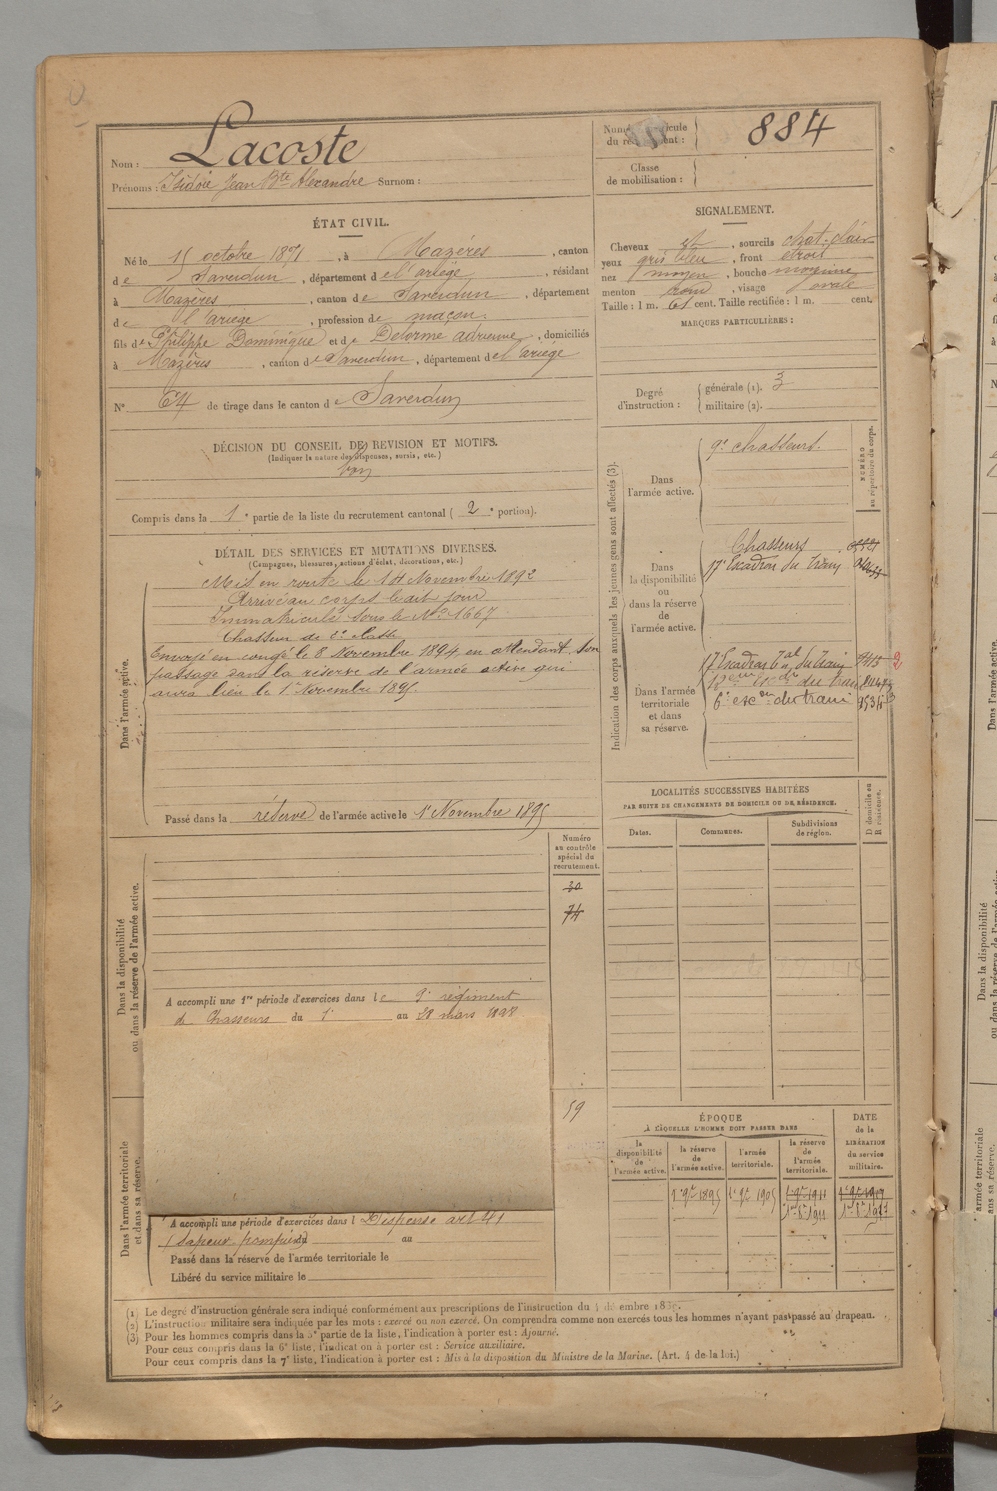 Nom : Lacoste
Prénoms : Isidore Jean Bte Alexandre Surnom :
ÉTAT CIVIL.
Né le 15 octobre 1871, à Mazéres, canton
de Saverdun, département de l'ariège, résidant
à Mazères, canton de Saverdun, département
de l'ariege, profession de maçon
fils de Philippe Dominique et de Delorme adrienne, domiciliés
à Mazères, canton de Saverdun, département de l'ariege
N° 64 de tirage dans le canton de Saverdun
DÉCISION DU CONSEIL DE REVISION ET MOTIFS.
(Indiquer la nature des dispenses, sursis, etc.)
bon
Compris dans la 1e partie de la liste du recrutement cantonal (2e portion).
DÉTAIL DES SERVICES ET MUTATIONS DIVERSES.
(Campagnes, blessures, actions d'éclat, décorations, etc.)
Dans l'armée active.
Mis en route le 14 Novembre 1892
Arrivé au corps le dit jour
Immatriculé sous le No 1667
Chasseur de 2e classe
Envoyé en congé le 8 Novembre 1894, en attendant son
passage dans la réserve de l'armée active qui
aura lieu le 1er Novembre 1895.
Passé dans la réserve de l'armée active le 1er Novembre 1895
Numéro
au contrôle
spécial du
recrutement.
30
74
Dans la disponibilité
ou dans la réserve de l'armée active.
A accompli une 1re période d'exercices dans le 9e régiment
de Chasseurs du 1er au 28 mars 1898
59
Dans l'armée territoriale
et dans sa réserve.
A accompli une période d'exercices dans l Dispense art 41
(sapeur pompier) du au
Passé dans la réserve de l'armée territoriale le
Libéré du service militaire le
884
Classe
de mobilisation :
SIGNALEMENT.
Cheveux , sourcils chat. clair
yeux gris bleu, front étroit
nez moyen, bouche moyenne
menton rond, visage ovale
Taille : 1 m. 61 cent. Taille rectifiée : 1 m. cent.
MARQUES PARTICULIÈRES :
Degré
d'instruction :
générale (1). 3
militaire (2).
Indication des corps auxquels les jeunes gens sont affectés (3).
NUMÉRO
au répertoire du corps.
Dans
l'armée active.
9e chasseurs.
Dans
la disponibilité
ou
dans la réserve
de
l'armée active.
Chasseurs
17e Escadron du Train
Dans l'armée
territoriale
et dans
sa réserve.
17 Escadron Tal du Train
6e escon du train
LOCALITÉS SUCCESSIVES HABITÉES
PAR SUITE DE CHANGEMENTS DE DOMICILE OU DE RÉSIDENCE.
Dates.
Communes.
Subdivisions
de région.
D domicile ou
R résidence.
ÉPOQUE
A LAQUELLE L'HOMME DOIT PASSER DANS
la
disponibilité
de
l'armée active.
la réserve
de
l'armée active.
l'armée
territoriale.
la réserve
de
l'armée
territoriale.
DATE
de la
LIBÉRATION
du service
militaire.
1er 9bre 1895
1er 9bre 1905
1er 9bre 1911
(1) Le degré d'instruction générale sera indiqué conformément aux prescriptions de l'instruction du
(2) L'instruction militaire sera indiquée par les mots : exercé ou non exercé. On comprendra comme non exercés tous les hommes n'ayant pas passé au drapeau.
(3) Pour les hommes compris dans la 5e partie de la liste, l'indication à porter est : Ajourné.
Pour ceux compris dans la 6e liste, l'indication à porter est : Service auxiliaire.
Pour ceux compris dans la 7e liste, l'indication à porter est : Mis à la disposition du Ministre de la Marine. (Art. 4 de la loi.)